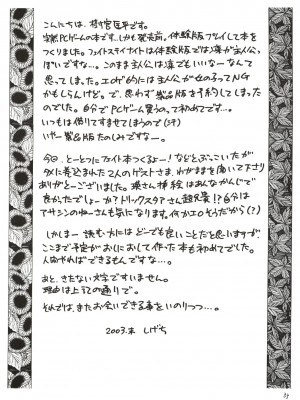 こんにちは、村官正平です。
突然PCゲームの本です…しかも発売前。体験版プレイして本を
つくりました。フェイトステイナイトは体験版では凛が主人公っ
ぽいですな…。このまま主人公は凛でもいいなーなんて
思ってしまった。エロゲ的には主人公が女の子ってNG
かもしらんけど。で、思わず製品版を予約してしまった
のでした。自分でPCゲーム買うのって初めてです…。
いつもは借りてすませてしまうので(汗)
いやー製品版たのしみですなー。
今回、とーとつにフェイト本つくるよー!などとぶっこいたが
タメに巻込まれた2人のゲストさま、わがままを聞いて下さり
ありがとーございました。頼さん挿絵はあんなかんじで
良かったでしょーか?トリックスタアさん超兄貴!?自分は
アサシンのゆーさんも気になります。
しかしまー読む方にはどーでも良いことだと思いますが、
ここまで予定がおしにおして作った本も初めてでした。
人間やればできるもんですな…。
あと、きたない文字ですいません。
理由は上記の通りで。
それでは、またお会いできる事をいのりつつ…。
2003.末 しげち